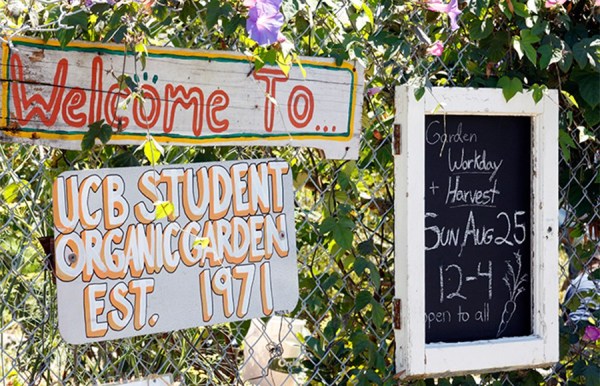 Welcome To...
UCB STUDENT
ORGANIC GARDEN
EST. 1971
Garden
Workday
+ Harvest
SUN AUG 25
12-4
open to all